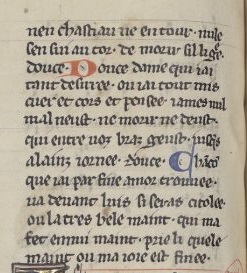 nen chastiau ne en tour · nule
sen sui au cor · de morir si li
douce · Douce dame qui iai
tant desirree · ou iai tout mis
cuer et cors et pensee · iames nul
mal neust · ne morir ne deust ·
qui entre voz braz geust ·
a la inz iornee · Douce · Chaco
que iai par fine amor trouuee ·
va deuant luis si seras citolee ·
ou la tres bele maint · qui ma
fet ennui maint · prie li quele
maint ou ma ioie est finee ·